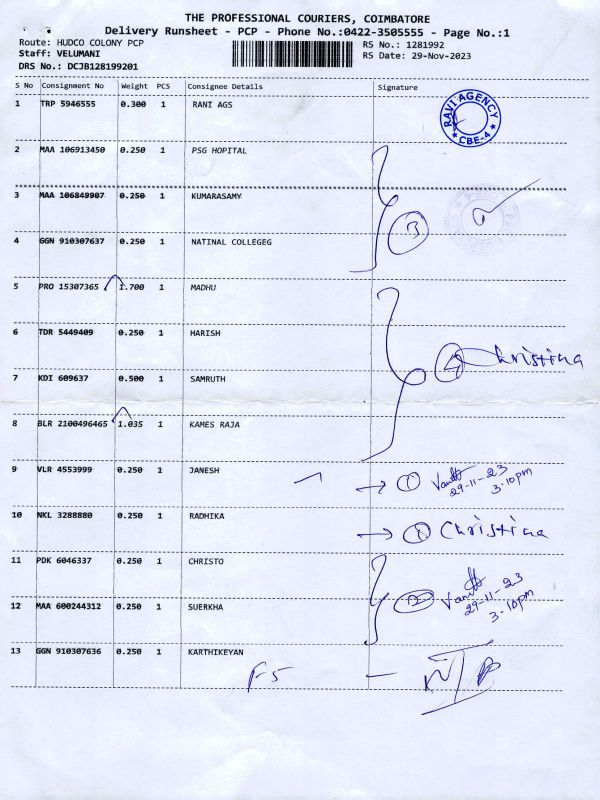 THE PROFESSIONAL COURIERS, COIMBATORE
Delivery Runsheet - PCP - Phone No.:0422-3505555 - Page No.:1
Route: HUDCO COLONY PCP
Staff: VELUMANI
DRS No.: DCJB128199201
RS No.: 1281992
RS Date: 29-Nov-2023
S No Consignment No Weight PCS Consignee Details Signature
1 TRP 5946555 0.300 1 RANI AGS
RAVI AGENCY
★ CBE-4 ★
2 MAA 106913450 0.250 1 PSG HOPITAL
3 MAA 106849907 0.250 1 KUMARASAMY
3
4 GGN 910307637 0.250 1 NATINAL COLLEGEG
5 PRO 15307365 1.700 1 MADHU
6 TDR 5449409 0.250 1 HARISH
4 Christina
7 KDI 609637 0.500 1 SAMRUTH
8 BLR 2100496465 1.035 1 KAMES RAJA
9 VLR 4553999 0.250 1 JANESH
→ 1
29-11-23
3.10pm
10 NKL 3288880 0.250 1 RADHIKA
→ 1 Christina
11 PDK 6046337 0.250 1 CHRISTO
2
29-11-23
3.10pm
12 MAA 600244312 0.250 1 SUERKHA
13 GGN 910307636 0.250 1 KARTHIKEYAN
F5 —